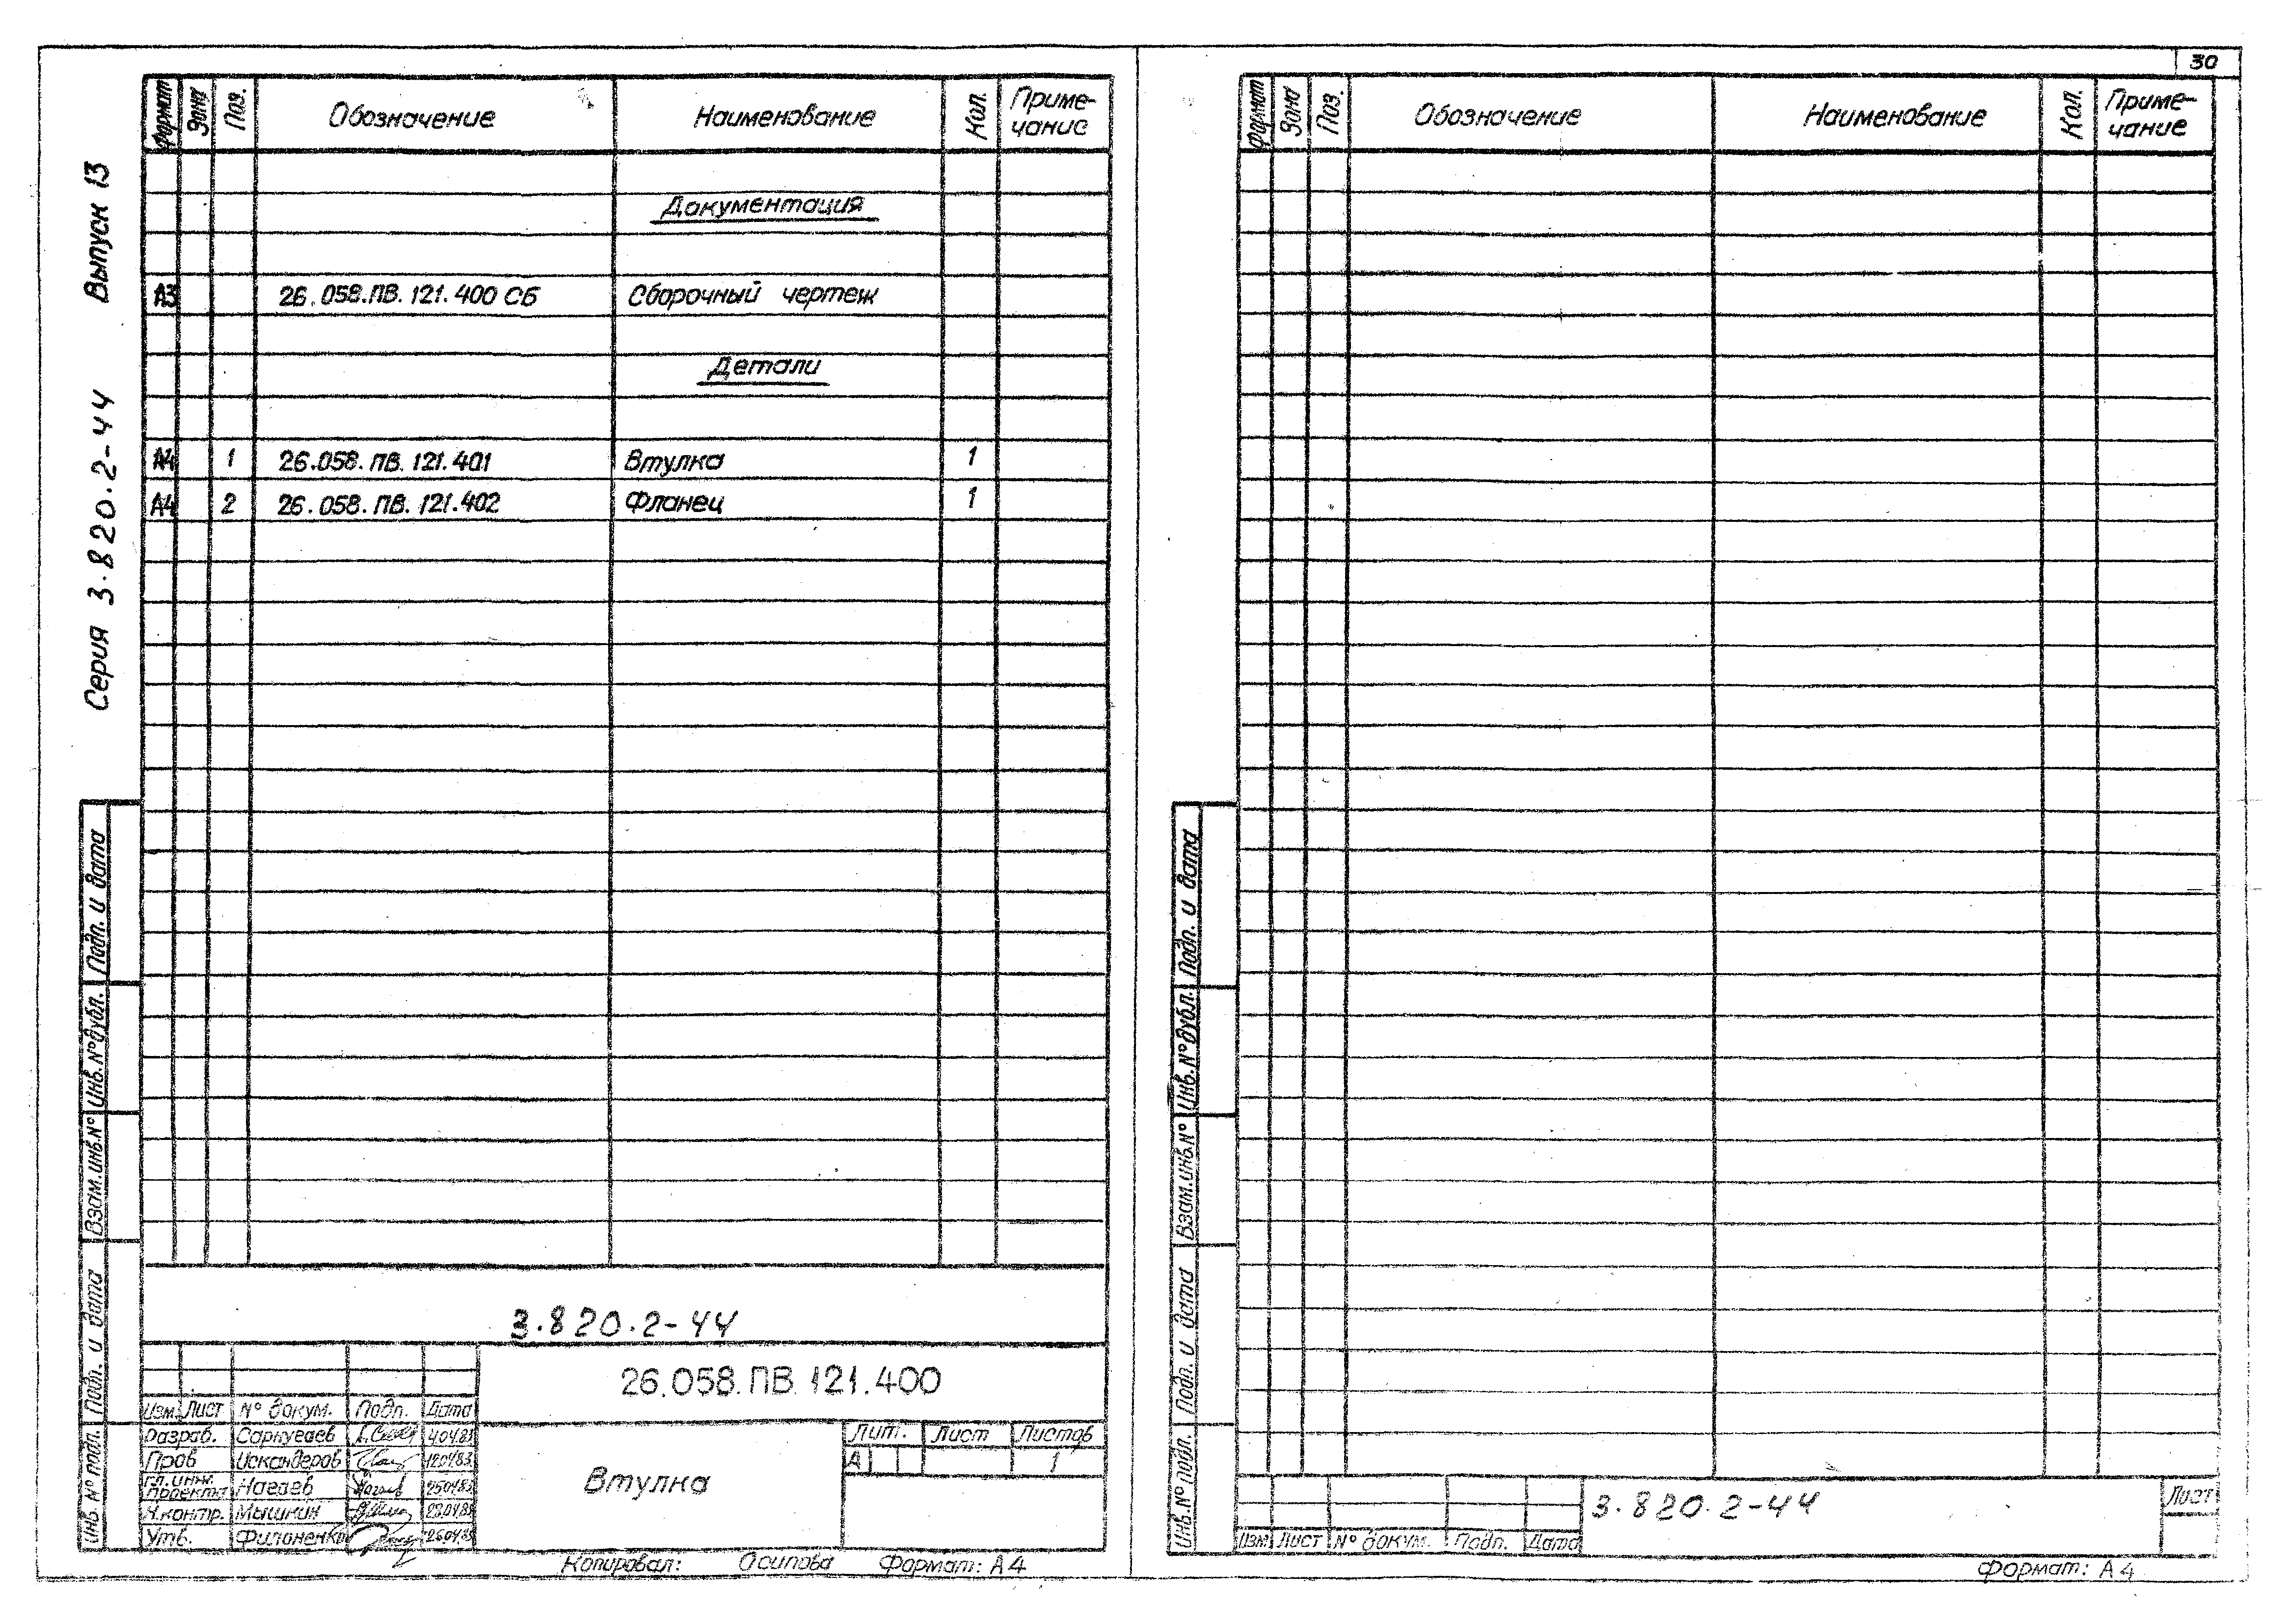 30
Серия 3.820.2-44 Выпуск 13
Формат Зона Поз. Обозначение Наименование Кол. Приме-чание
Документация
А3 26.058.ПВ.121.400 СБ Сборочный чертеж
Детали
А4 1 26.058.ПВ.121.401 Втулка 1
А4 2 26.058.ПВ.121.402 Фланец 1
3.820.2-44
26.058.ПВ.121.400
Изм. Лист № докум. Подп. Дата
Разраб. Саркугаев
Пров Искандеров
Гл. инж. проекта Нагаев
Н.контр. Мышкин
Утв. Филоненко
Втулка
Лит. Лист Листов
А 1
Копировал: Осипова Формат: А4
Подп. и дата
Инв. № дубл.
Взам. инв. №
Подп. и дата
Инв. № подл.
Формат Зона Поз. Обозначение Наименование Кол. Приме-чание
Подп. и дата
Инв. № дубл.
Взам. инв. №
Подп. и дата
Инв. № подл.
3.820.2-44
Лист
Изм Лист № докум. Подп. Дата
Формат: А4